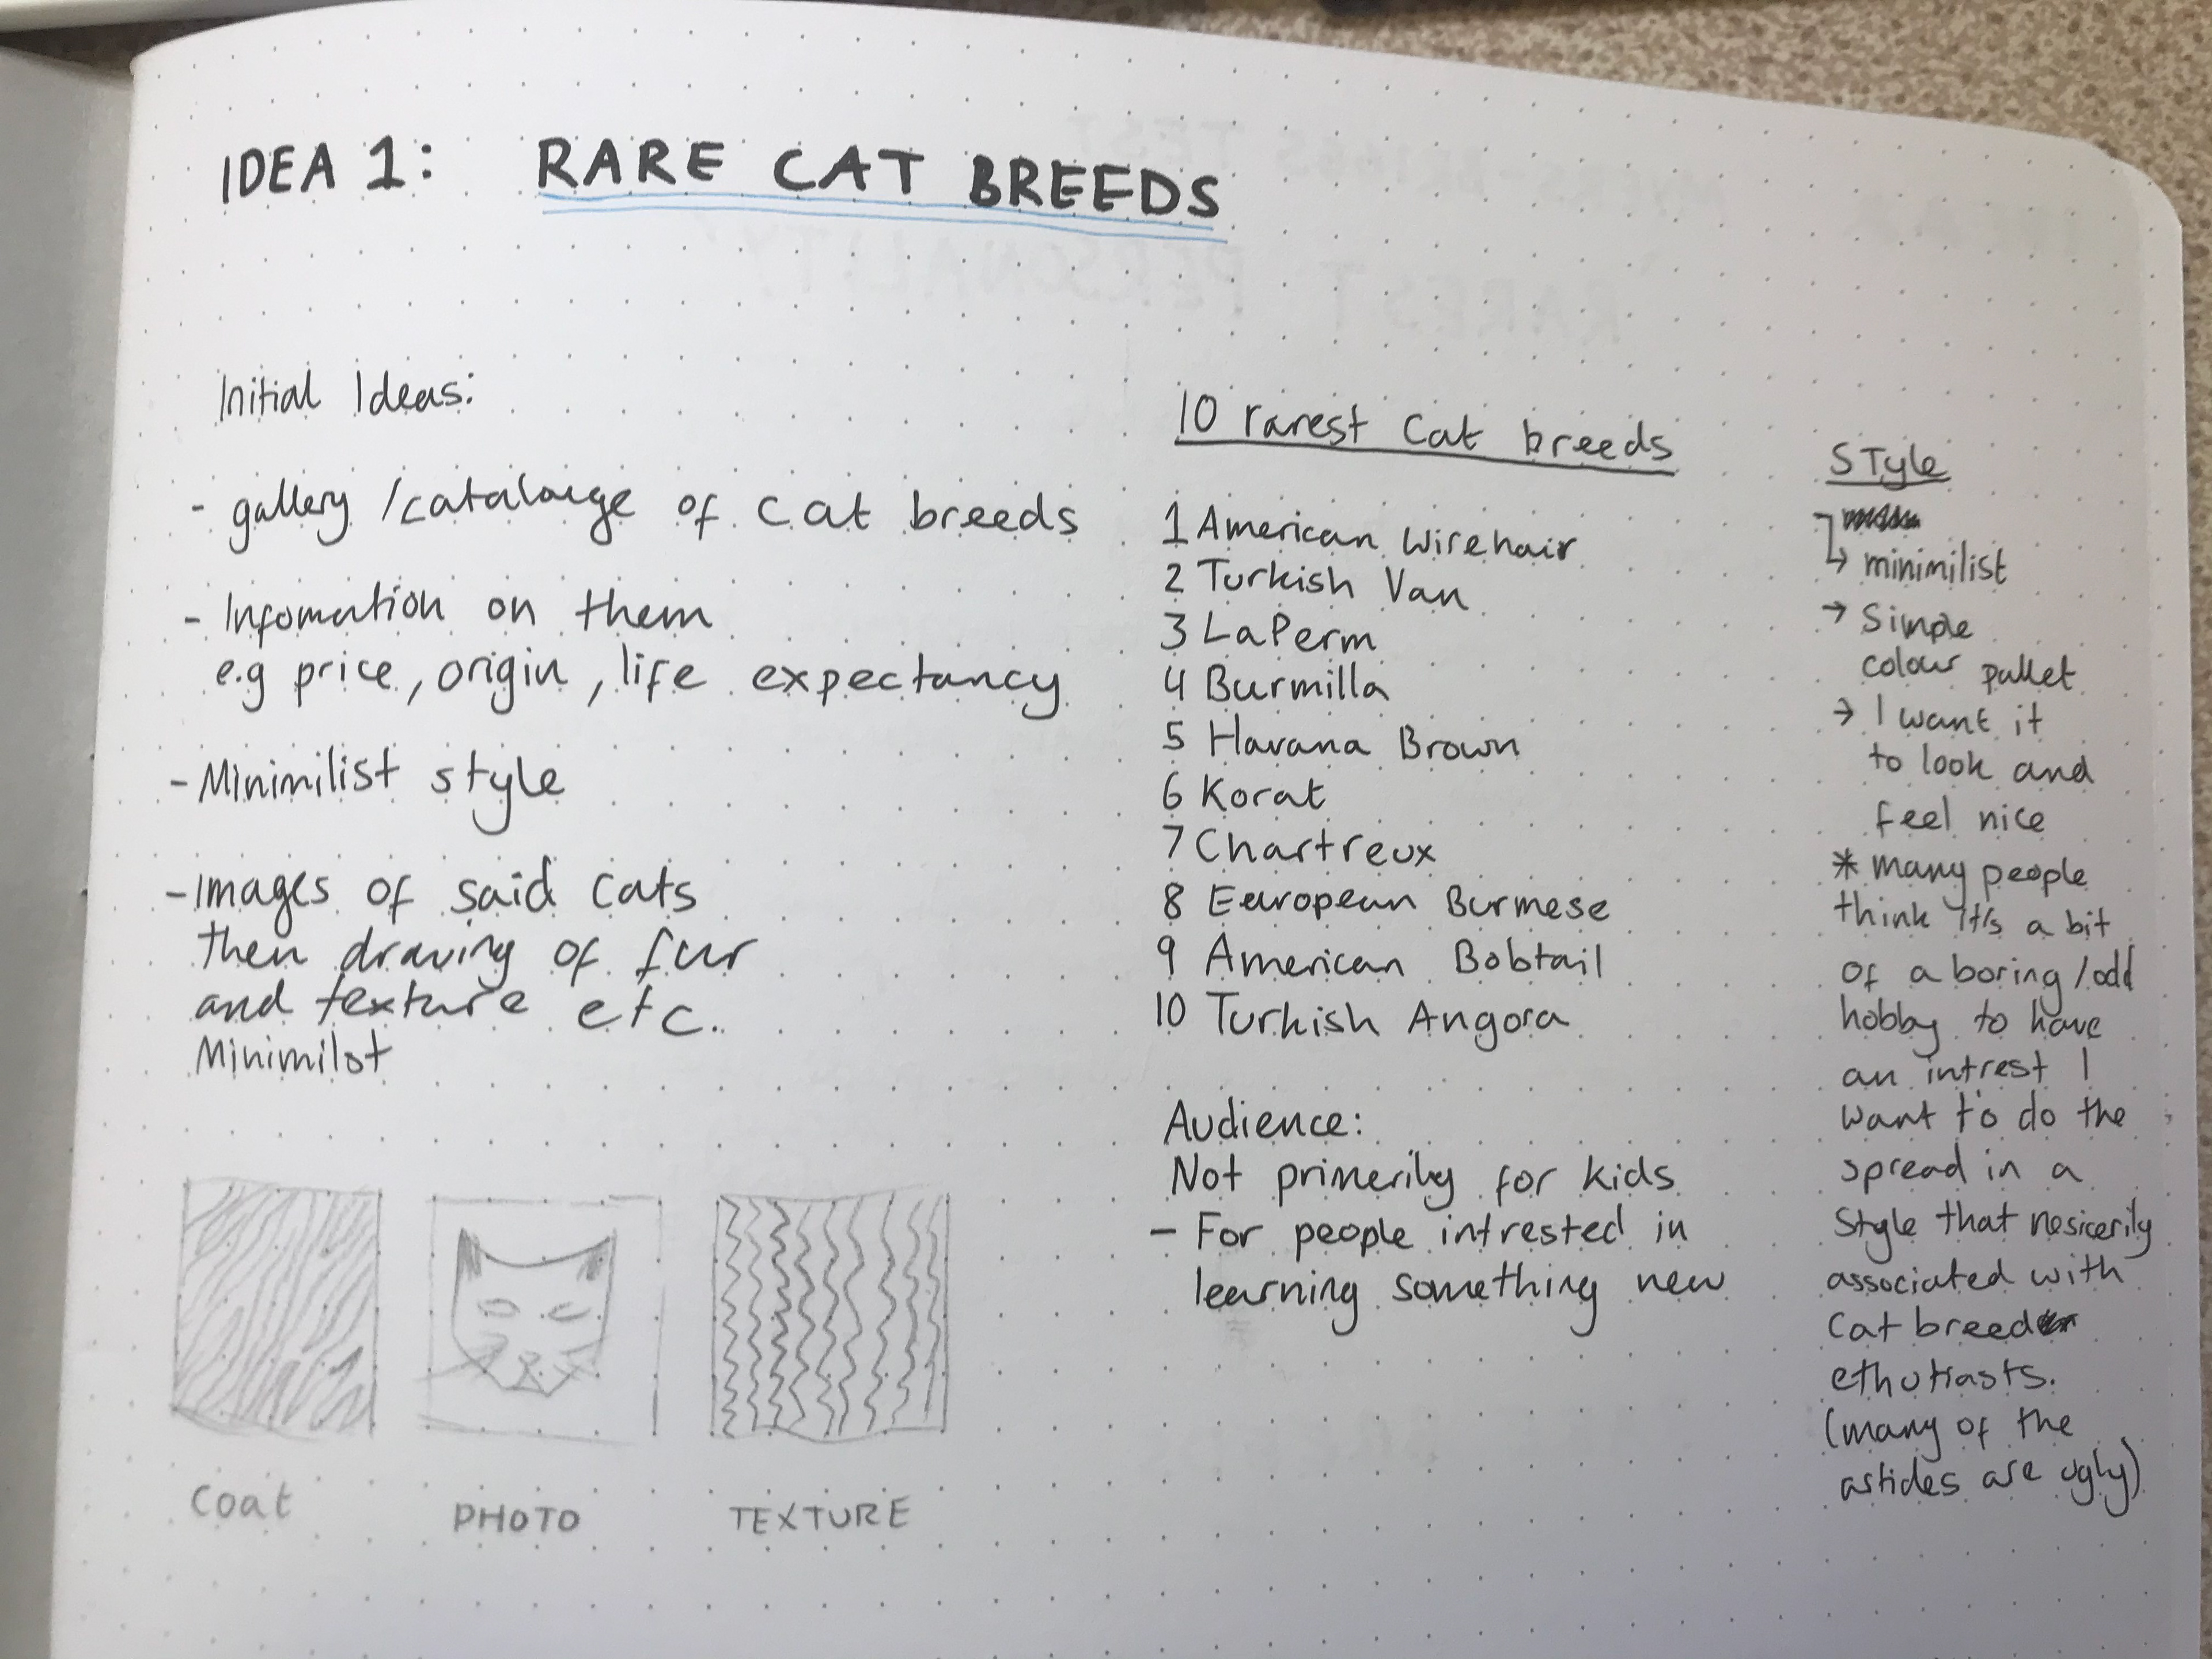 IDEA 1: RARE CAT BREEDS
Initial Ideas:
- gallery /catalouge of cat breeds
- Infomation on them
e.g price, origin, life expectancy
- Minimilist style
- Images of said cats
then drawing of fur
and texture etc.
Minimilst
Coat
PHOTO
TEXTURE
10 rarest Cat breeds
1 American Wirehair
2 Turkish Van
3 LaPerm
4 Burmilla
5 Havana Brown
6 Korat
7 Chartreux
8 European Burmese
9 American Bobtail
10 Turkish Angora
Audience:
Not primerily for kids
- For people intrested in
learning something new
STyle
↳ minimilist
→ Simple
colour pallet
→ I want it
to look and
feel nice
* many people
think it's a bit
of a boring/odd
hobby to have
an intrest I
want to do the
spread in a
style that nesicerily
associated with
cat breed
ethutiasts.
(many of the
articles are ugly)